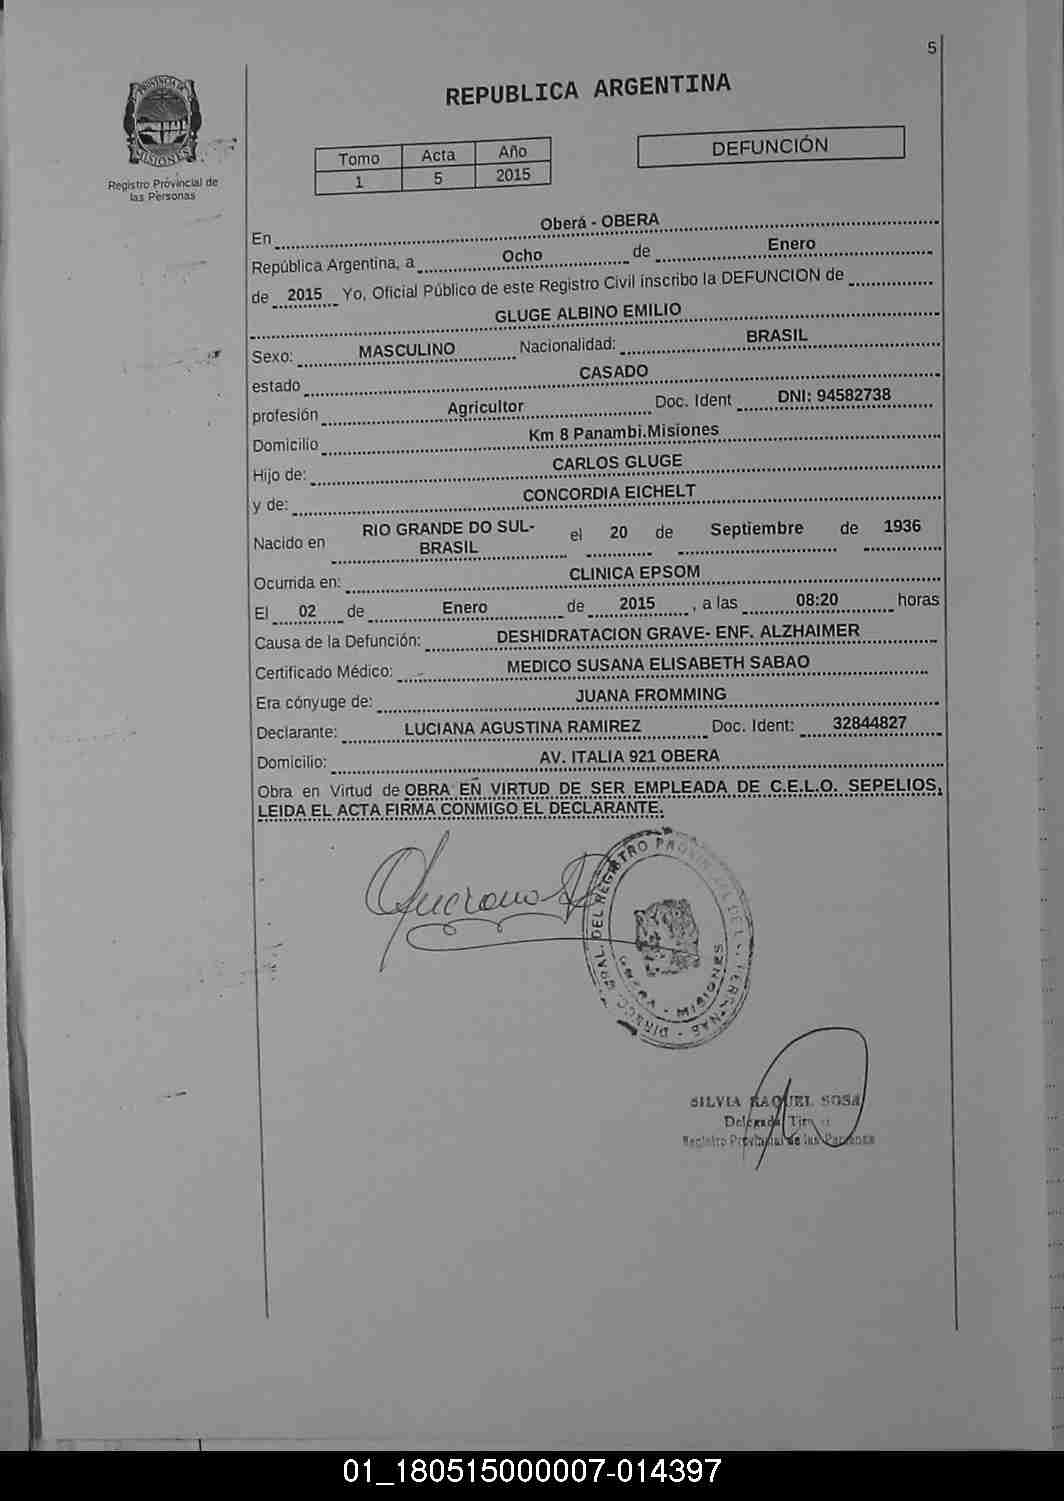 5
REPUBLICA ARGENTINA
PROVINCIA DE
MISIONES
Registro Provincial de
las Personas
Tomo Acta Año
1 5 2015
DEFUNCIÓN
En Oberá - OBERA
República Argentina, a Ocho de Enero
de 2015 Yo, Oficial Público de este Registro Civil inscribo la DEFUNCION de
GLUGE ALBINO EMILIO
Sexo: MASCULINO Nacionalidad: BRASIL
estado CASADO
profesión Agricultor Doc. Ident DNI: 94582738
Domicilio Km 8 Panambi.Misiones
Hijo de: CARLOS GLUGE
y de: CONCORDIA EICHELT
Nacido en RIO GRANDE DO SUL-
BRASIL el 20 de Septiembre de 1936
Ocurrida en: CLINICA EPSOM
El 02 de Enero de 2015 , a las 08:20 horas
Causa de la Defunción: DESHIDRATACION GRAVE- ENF. ALZHAIMER
Certificado Médico: MEDICO SUSANA ELISABETH SABAO
Era cónyuge de: JUANA FROMMING
Declarante: LUCIANA AGUSTINA RAMIREZ Doc. Ident: 32844827
Domicilio: AV. ITALIA 921 OBERA
Obra en Virtud de OBRA EN VIRTUD DE SER EMPLEADA DE C.E.L.O. SEPELIOS,
LEIDA EL ACTA FIRMA CONMIGO EL DECLARANTE.
GRAL. DEL REGISTRO
MISIONES
SILVIA RAQUEL SOSA
Delegada
Registro Provincial de las Personas
01_180515000007-014397